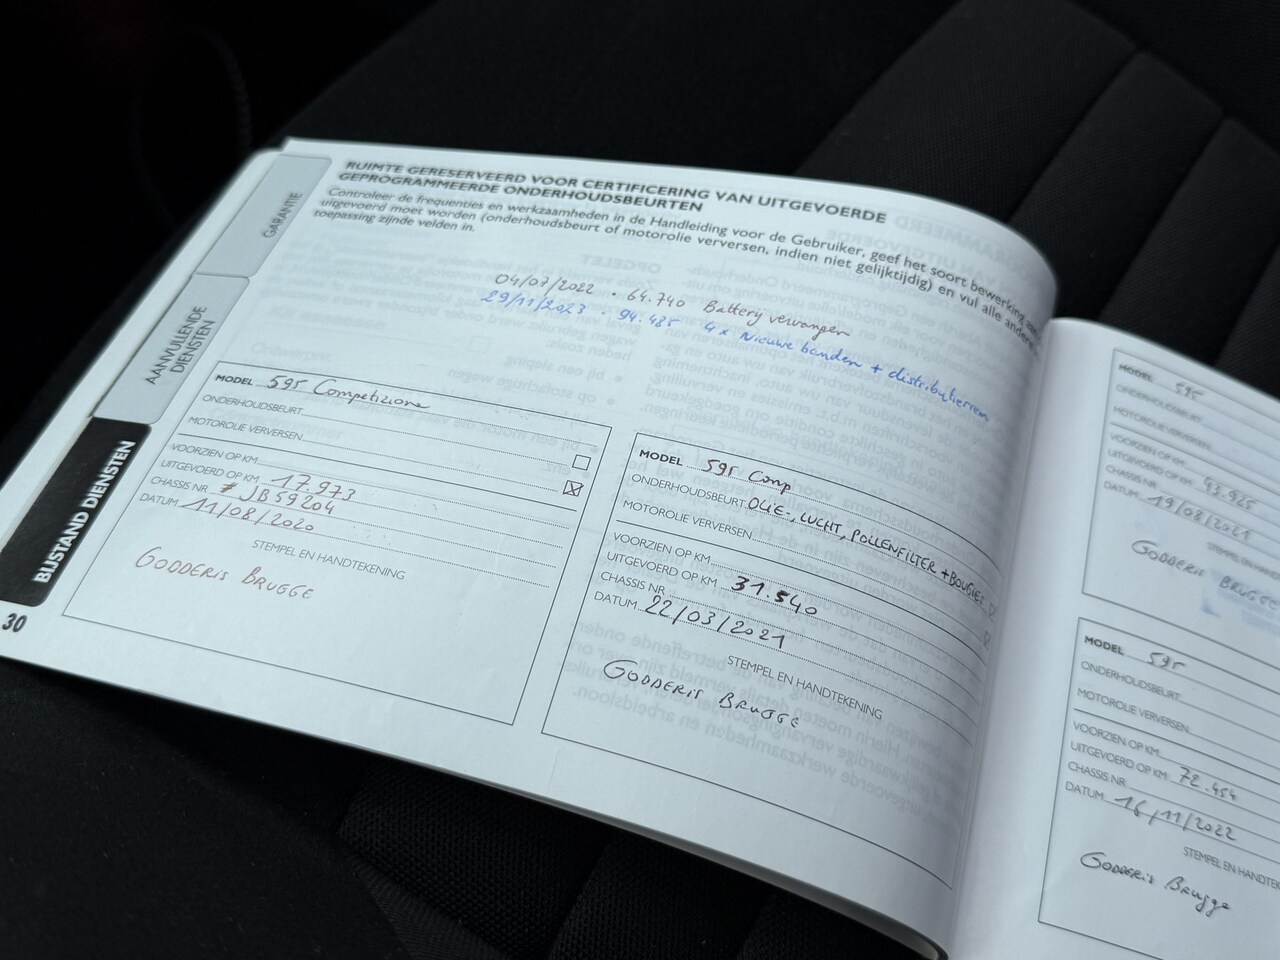 RUIMTE GERESERVEERD VOOR CERTIFICERING VAN UITGEVOERDE
GEPROGRAMMEERDE ONDERHOUDSBEURTEN
Controleer de frequenties en werkzaamheden in de Handleiding voor de Gebruiker, geef het soort bewerking
uitgevoerd moet worden (onderhoudsbeurt of motorolie verversen, indien niet gelijktijdig) en vul alle andere
toepassing zijnde velden in.
GARANTIE
AANVULLENDE
DIENSTEN
BIJSTAND DIENSTEN
30
04/07/2022 . 64.740 Battery vervangen
29/11/2023 . 94.485 4x Nieuwe banden + distributieriem
MODEL 595 Competizione
ONDERHOUDSBEURT
MOTOROLIE VERVERSEN
VOORZIEN OP KM
UITGEVOERD OP KM 17.973
CHASSIS NR JB59204
DATUM 11/08/2020
STEMPEL EN HANDTEKENING
GODDERIS BRUGGE
MODEL 595 Comp
ONDERHOUDSBEURT OLIE-, LUCHT, POLLENFILTER + BOUGIES
MOTOROLIE VERVERSEN
VOORZIEN OP KM
UITGEVOERD OP KM 31.540
CHASSIS NR
DATUM 22/03/2021
STEMPEL EN HANDTEKENING
GODDERIS BRUGGE
MODEL 595
ONDERHOUDSBEURT
MOTOROLIE VERVERSEN
VOORZIEN OP KM
UITGEVOERD OP KM
CHASSIS NR
DATUM 19/08/2021
GODDERIS BRUGGE
MODEL 595
ONDERHOUDSBEURT
MOTOROLIE VERVERSEN
VOORZIEN OP KM
UITGEVOERD OP KM 72.454
CHASSIS NR
DATUM 16/11/2022
STEMPEL EN
Godderis Brugge